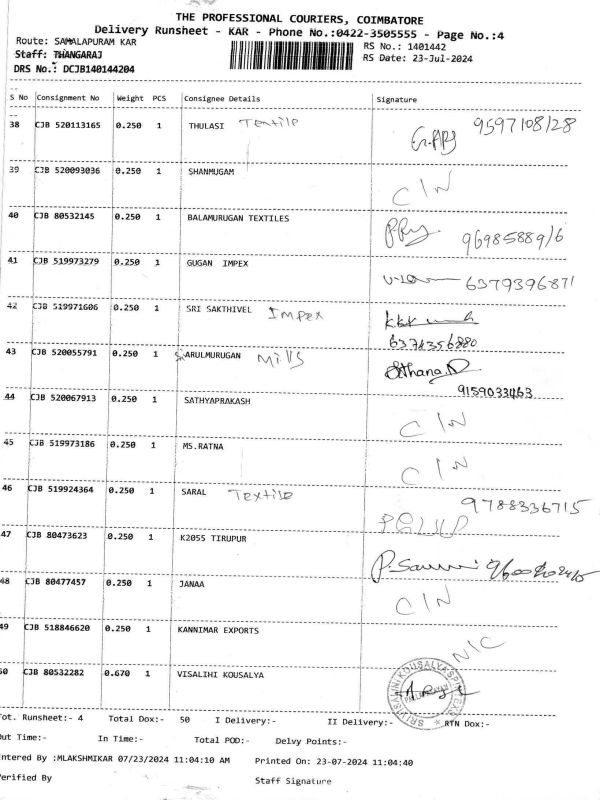 THE PROFESSIONAL COURIERS, COIMBATORE
Delivery Runsheet - KAR - Phone No.:0422-3505555 - Page No.:4
Route: SAMALAPURAM KAR RS No.: 1401442
Staff: THANGARAJ RS Date: 23-Jul-2024
DRS No.: DCJB140144204
S No Consignment No Weight PCS Consignee Details Signature
38 CJB 520113165 0.250 1 THULASI Textile 9597108128
39 CJB 520093036 0.250 1 SHANMUGAM C/N
40 CJB 80532145 0.250 1 BALAMURUGAN TEXTILES 9698588916
41 CJB 519973279 0.250 1 GUGAN IMPEX 6379396871
42 CJB 519971606 0.250 1 SRI SAKTHIVEL Impex
6374356880
43 CJB 520055791 0.250 1 ARULMURUGAN Mills
9159033463
44 CJB 520067913 0.250 1 SATHYAPRAKASH C/N
45 CJB 519973186 0.250 1 MS.RATNA C/N
46 CJB 519924364 0.250 1 SARAL Textile 9788336715
47 CJB 80473623 0.250 1 K2055 TIRUPUR
48 CJB 80477457 0.250 1 JANAA C/N
49 CJB 518846620 0.250 1 KANNIMAR EXPORTS N/C
50 CJB 80532282 0.670 1 VISALIHI KOUSALYA
Tot. Runsheet:- 4 Total Dox:- 50 I Delivery:- II Delivery:- RTN Dox:-
Out Time:- In Time:- Total POD:- Delvy Points:-
Entered By :MLAKSHMIKAR 07/23/2024 11:04:10 AM Printed On: 23-07-2024 11:04:40
Verified By Staff Signature